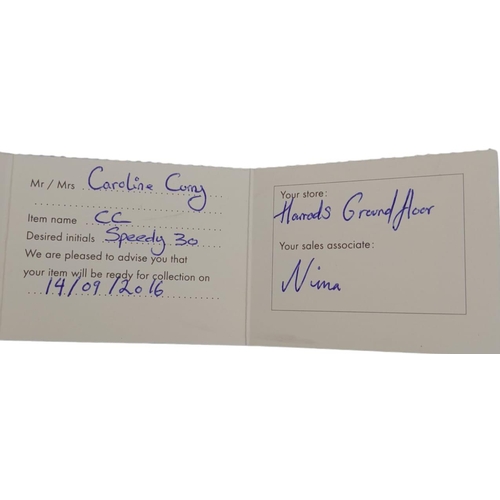 Mr / Mrs Caroline Curry
Item name CC
Desired initials Speedy 30
We are pleased to advise you that
your item will be ready for collection on
14/09/2016
Your store:
Harrods Ground floor
Your sales associate:
Nima